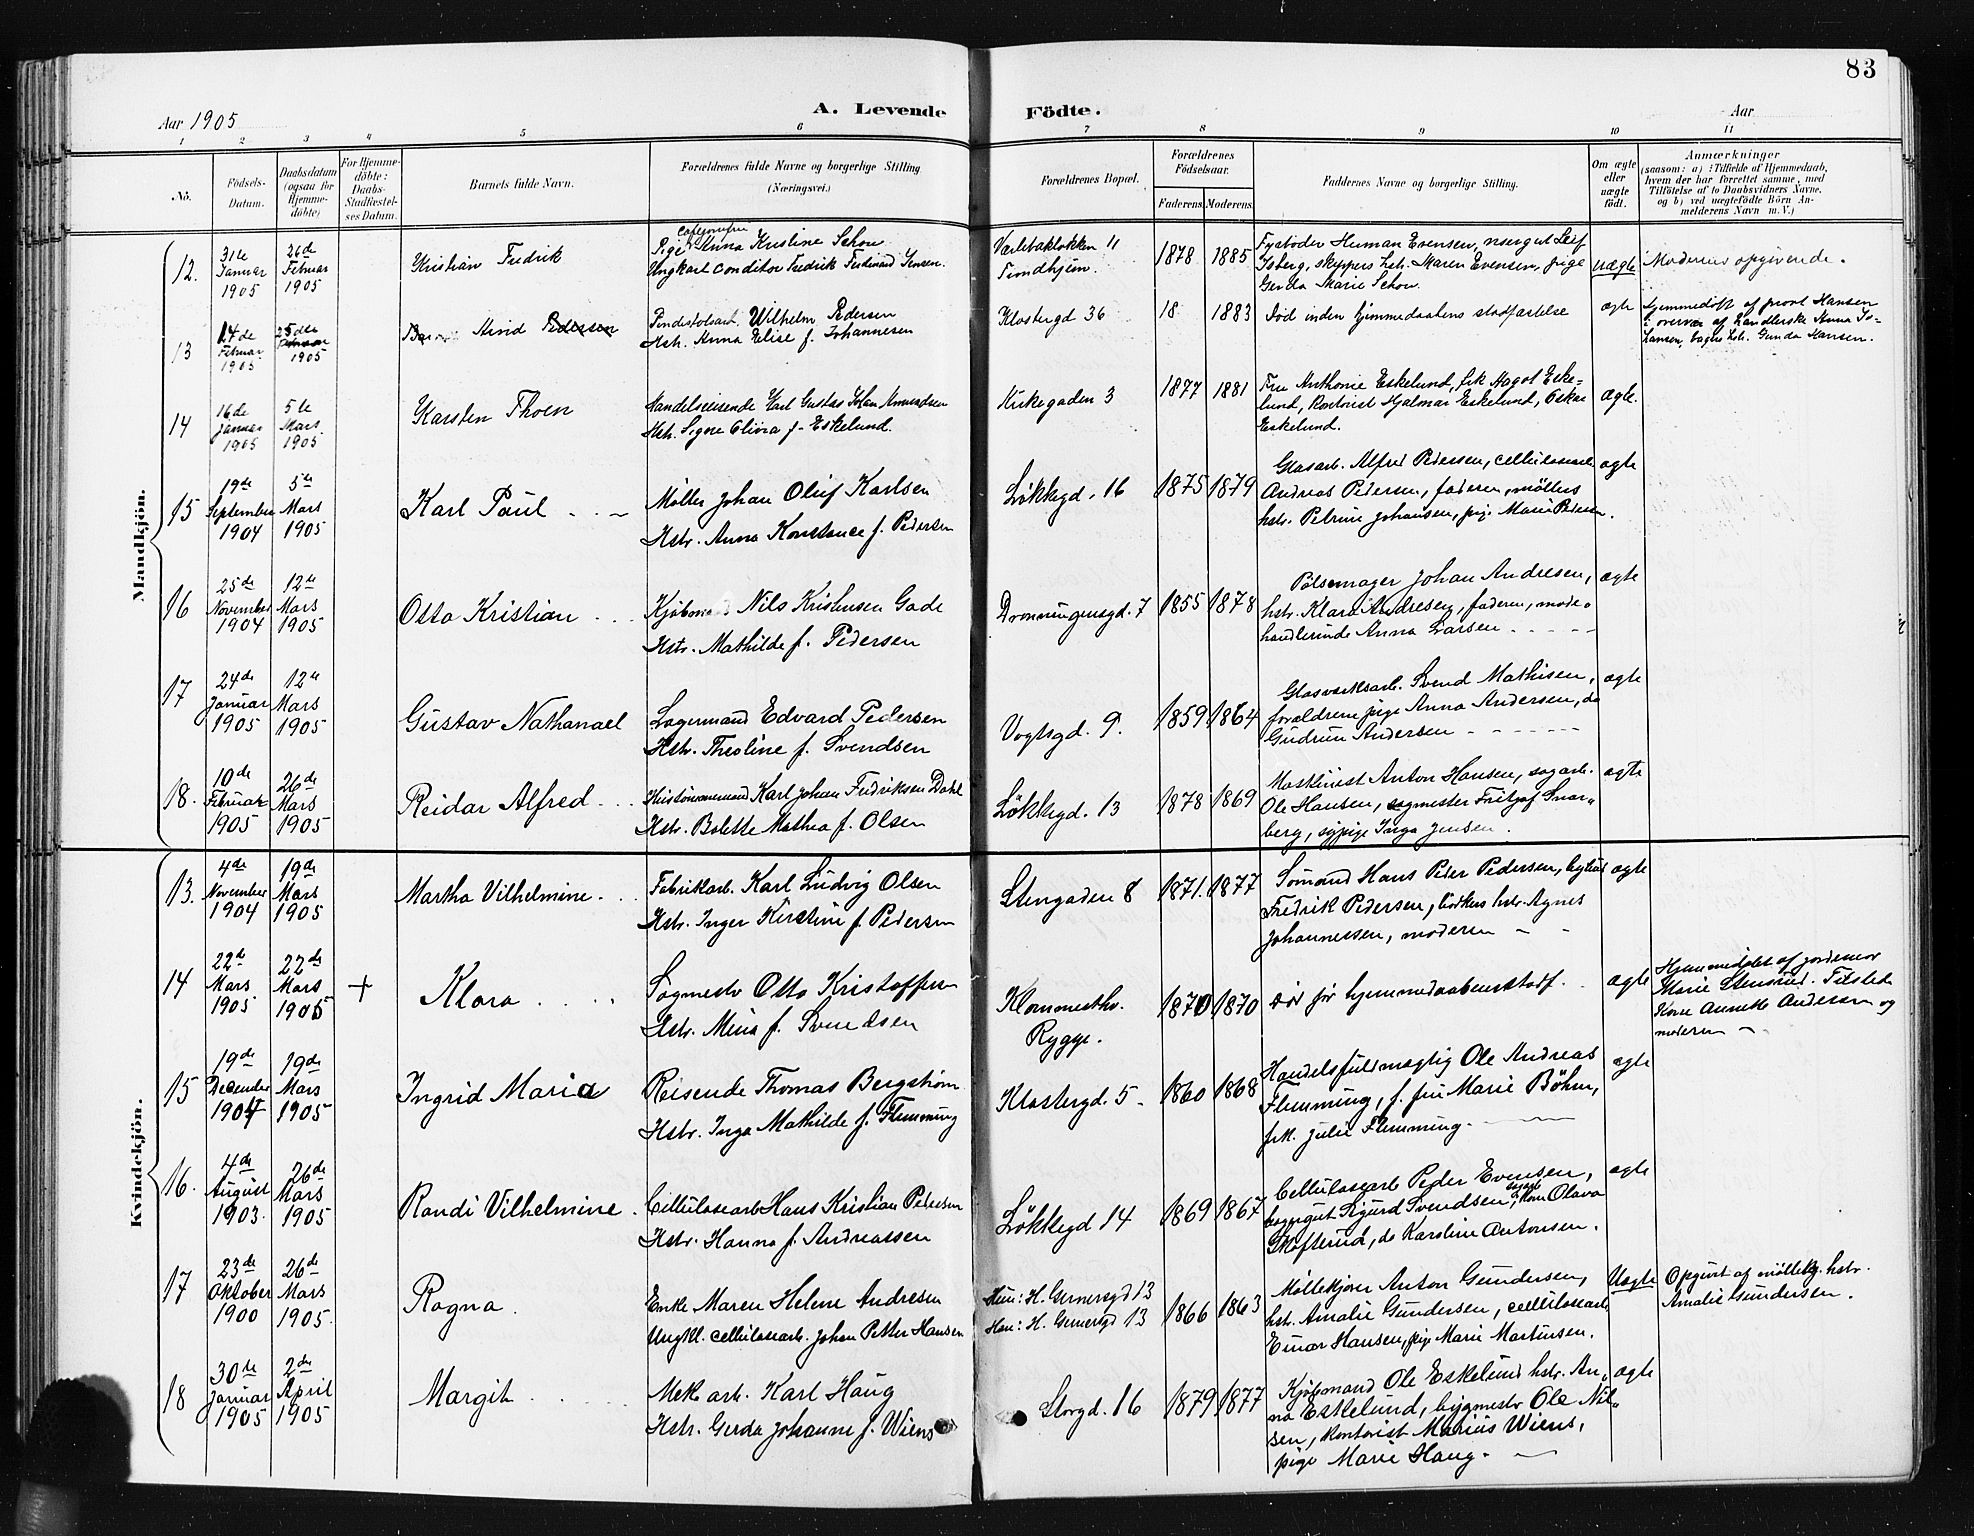 83
Aar 1905
A. Levende Födte.
Aar
1 2 3 4 5 6 7 8 9 10 11
No.
Födsels-Datum.
Daabsdatum (ogsaa for Hjemme-döbte)
For Hjemme-döbte: Daabs-Stadfæstel-ses Datum.
Barnets fulde Navn.
Forældrenes fulde Navne og borgerlige Stilling (Næringsvei.)
Forældrenes Bopæl.
Forældrenes Födselsaar.
Faderens Moderens
Faddernes Navne og borgerlige Stilling.
Om ægte eller uægte født.
Anmærkninger
(saasom: a) i Tilfælde af Hjemmedaab,
hvem der har forrettet samme, med
Tilföielse af to Daabsvidners Navne,
og b) ved uægtefödte Börn An-
melderens Navn m. V.)
Mandkjön.
12. 31te Januar 1905 26de Februar 1905 Kristian Fredrik
Pige Anna Kristine Schou
Ungkarl conditor Fredrik Ferdinand Jensen
1878 1885
Evensen,
skippers hstr. Maren Evensen, pige
Gerda Marie Schou
uægte Moderens opgivende.
13 14de Februar 1905 1905 Arvid Pedersen
Wilhelm Pedersen
Hstr. Anna Elise f. Johannesen
Klostergd 36 18 1883 Död inden hjemmedaabens stadfæstelse ægte
Hjemmedöbt af provst Hansen
i overvær af handlerske Anna Jo-
hansen, bagers hstr. Gunda Hansen.
14 16de Januar 1905 5te Mars 1905 Karsten Thoen
Handelsreisende Karl Gustav Johan Amundsen
Hstr. Signe Olivia f. Eskelund.
Kirkegaden 3 1877 1881
Fru Anthonie Eskelund, frk Hagot Eske-
lund, Kontorist Hjalmar Eskelund, Oskar
Eskelund.
ægte.
15 19de September 1904 5te Mars 1905 Karl Paul
Møller Johan Oluf Karlsen
Hstr. Anna Konstance f. Pedersen
Løkkegd. 16 1875 1879
Glasarb. Alfred Pedersen, cellulosearb.
Andreas Pedersen, faderen, møllers
hstr. Petrine Johansen, pige Marie Pedersen.
ægte
16 25de November 1904 12te Mars 1905 Otto Kristian
Kjøbmand Nils Kristensen Gade
Hstr. Mathilde f. Pedersen
Dronningensgd. 7 1855 1878
Pølsemager Johan Andresen,
hstr. Klara Andresen, faderen, mode-
handlerinde Anna Larsen
ægte
17 24de Januar 1905 12te Mars 1905 Gustav Nathanael
Lagermand Edvard Pedersen
Hstr. Theoline f. Svendsen
Vogtsgd. 9. 1859 1864
Glasværksarb. Svend Mathisen,
forældrene pige Anna Andersen, do
Gudrun Andersen
ægte
18. 10de Februar 1905 26de Mars 1905 Reidar Alfred
Karl Johan Fredriksen Dahl
Hstr. Bolette Mathea f. Olsen
Løkkegd. 13 1878 1869
Maskinist Anton Hansen, sagarb.
Ole Hansen, sagmester Fritjof Snar-
berg, sypige Inga Jensen.
ægte
Kvindekjön.
13. 4de November 1904 19de Mars 1905 Martha Vilhelmine
Fabrikarb. Karl Ludvig Olsen
Hstr. Inger Kirstine f. Pedersen
Stengaden 8 1871. 1877
Sömand Hans Peter Pedersen,
Fredrik Pedersen, bödkers hstr. Agnes
Johannessen, moderen
ægte
14 22de Mars 1905 22de Mars 1905 + Klara
Sagmestr Otto Kristoffersen
Hstr. Mina f. Svendsen
Rygge. 1870 1870
død før hjemmedaabens stadf.
ægte
Hjemmedöbt af jordemor
Marie Stensrud. Tilstede
Kone Annette Andersen og
moderen
15 19de December 1904 19de Mars 1905 Ingrid Maria
Reisende Thomas Bergstrøm
Hstr. Inga Mathilde f. Flemming
Klostergd. 5 1860 1868
Handelsfuldmægtig Ole Andreas
Flemming, f. fru Marie Böhm,
frk. Julie Flemming.
ægte
16. 4de August 1903. 26de Mars 1905 Randi Vilhelmine
Cellulosearb Hans Kristian Pedersen
Hstr. Hanna f. Andreassen
Løkkegd 14 1869 1867
Cellulosearb Peder Evensen,
Sigurd Svendsen, Kone Olava
Skofterud, do Karoline Antonsen.
ægte
17 23de Oktober 1900 26de Mars 1905. Ragna.
Enke Maren Helene Andresen
Ungkl. cellulosearb. Johan Petter Hansen
Hun: H. Gernersgd 13
Han: H. Gernersgd 13
1866 1863
Møllekjører Anton Gundersen,
hstr. Amalie Gundersen, cellulosearb.
Einar Hansen, pige Marie Martinsen.
Uægte
Opgivet af møllekj. hstr.
Amalie Gundersen.
18 30te Januar 1905 2den April 1905 Margit
Mek arb. Karl Haug
Hstr. Gerda Johanne f. Wiens
Storgd. 16 1879 1877
Kjøbmand Ole Eskelund hstr. An-
na Eskelund, bygmestr Ole Nil-
sen, Kontorist Marius Wiens,
pige Marie Haug.
ægte